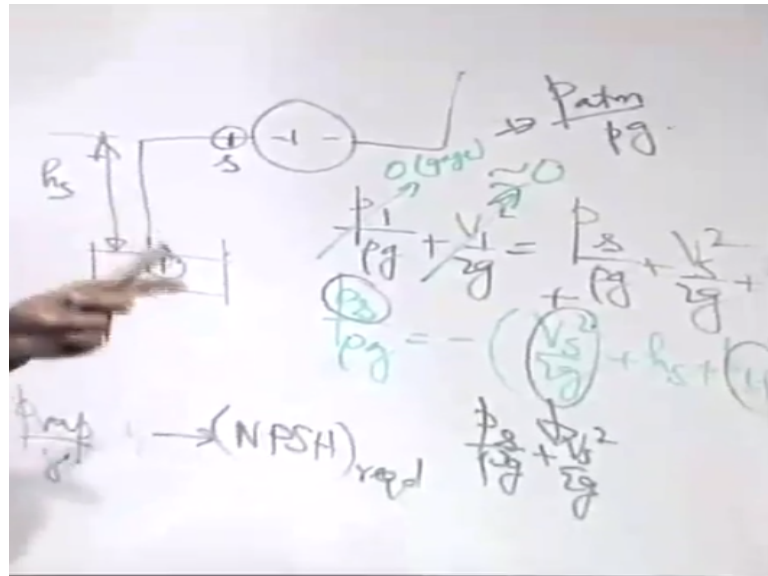 h_s
s
-1 -
→ p_atm/ρg.
0 (gage) ≈0
p_1/ρg + V_1²/2g = p_s/ρg + V_s²/2g +
p_s/ρg = -(V_s²/2g + h_s +
→ (NPSH)_reqd p_s/ρg + V_s²/2g